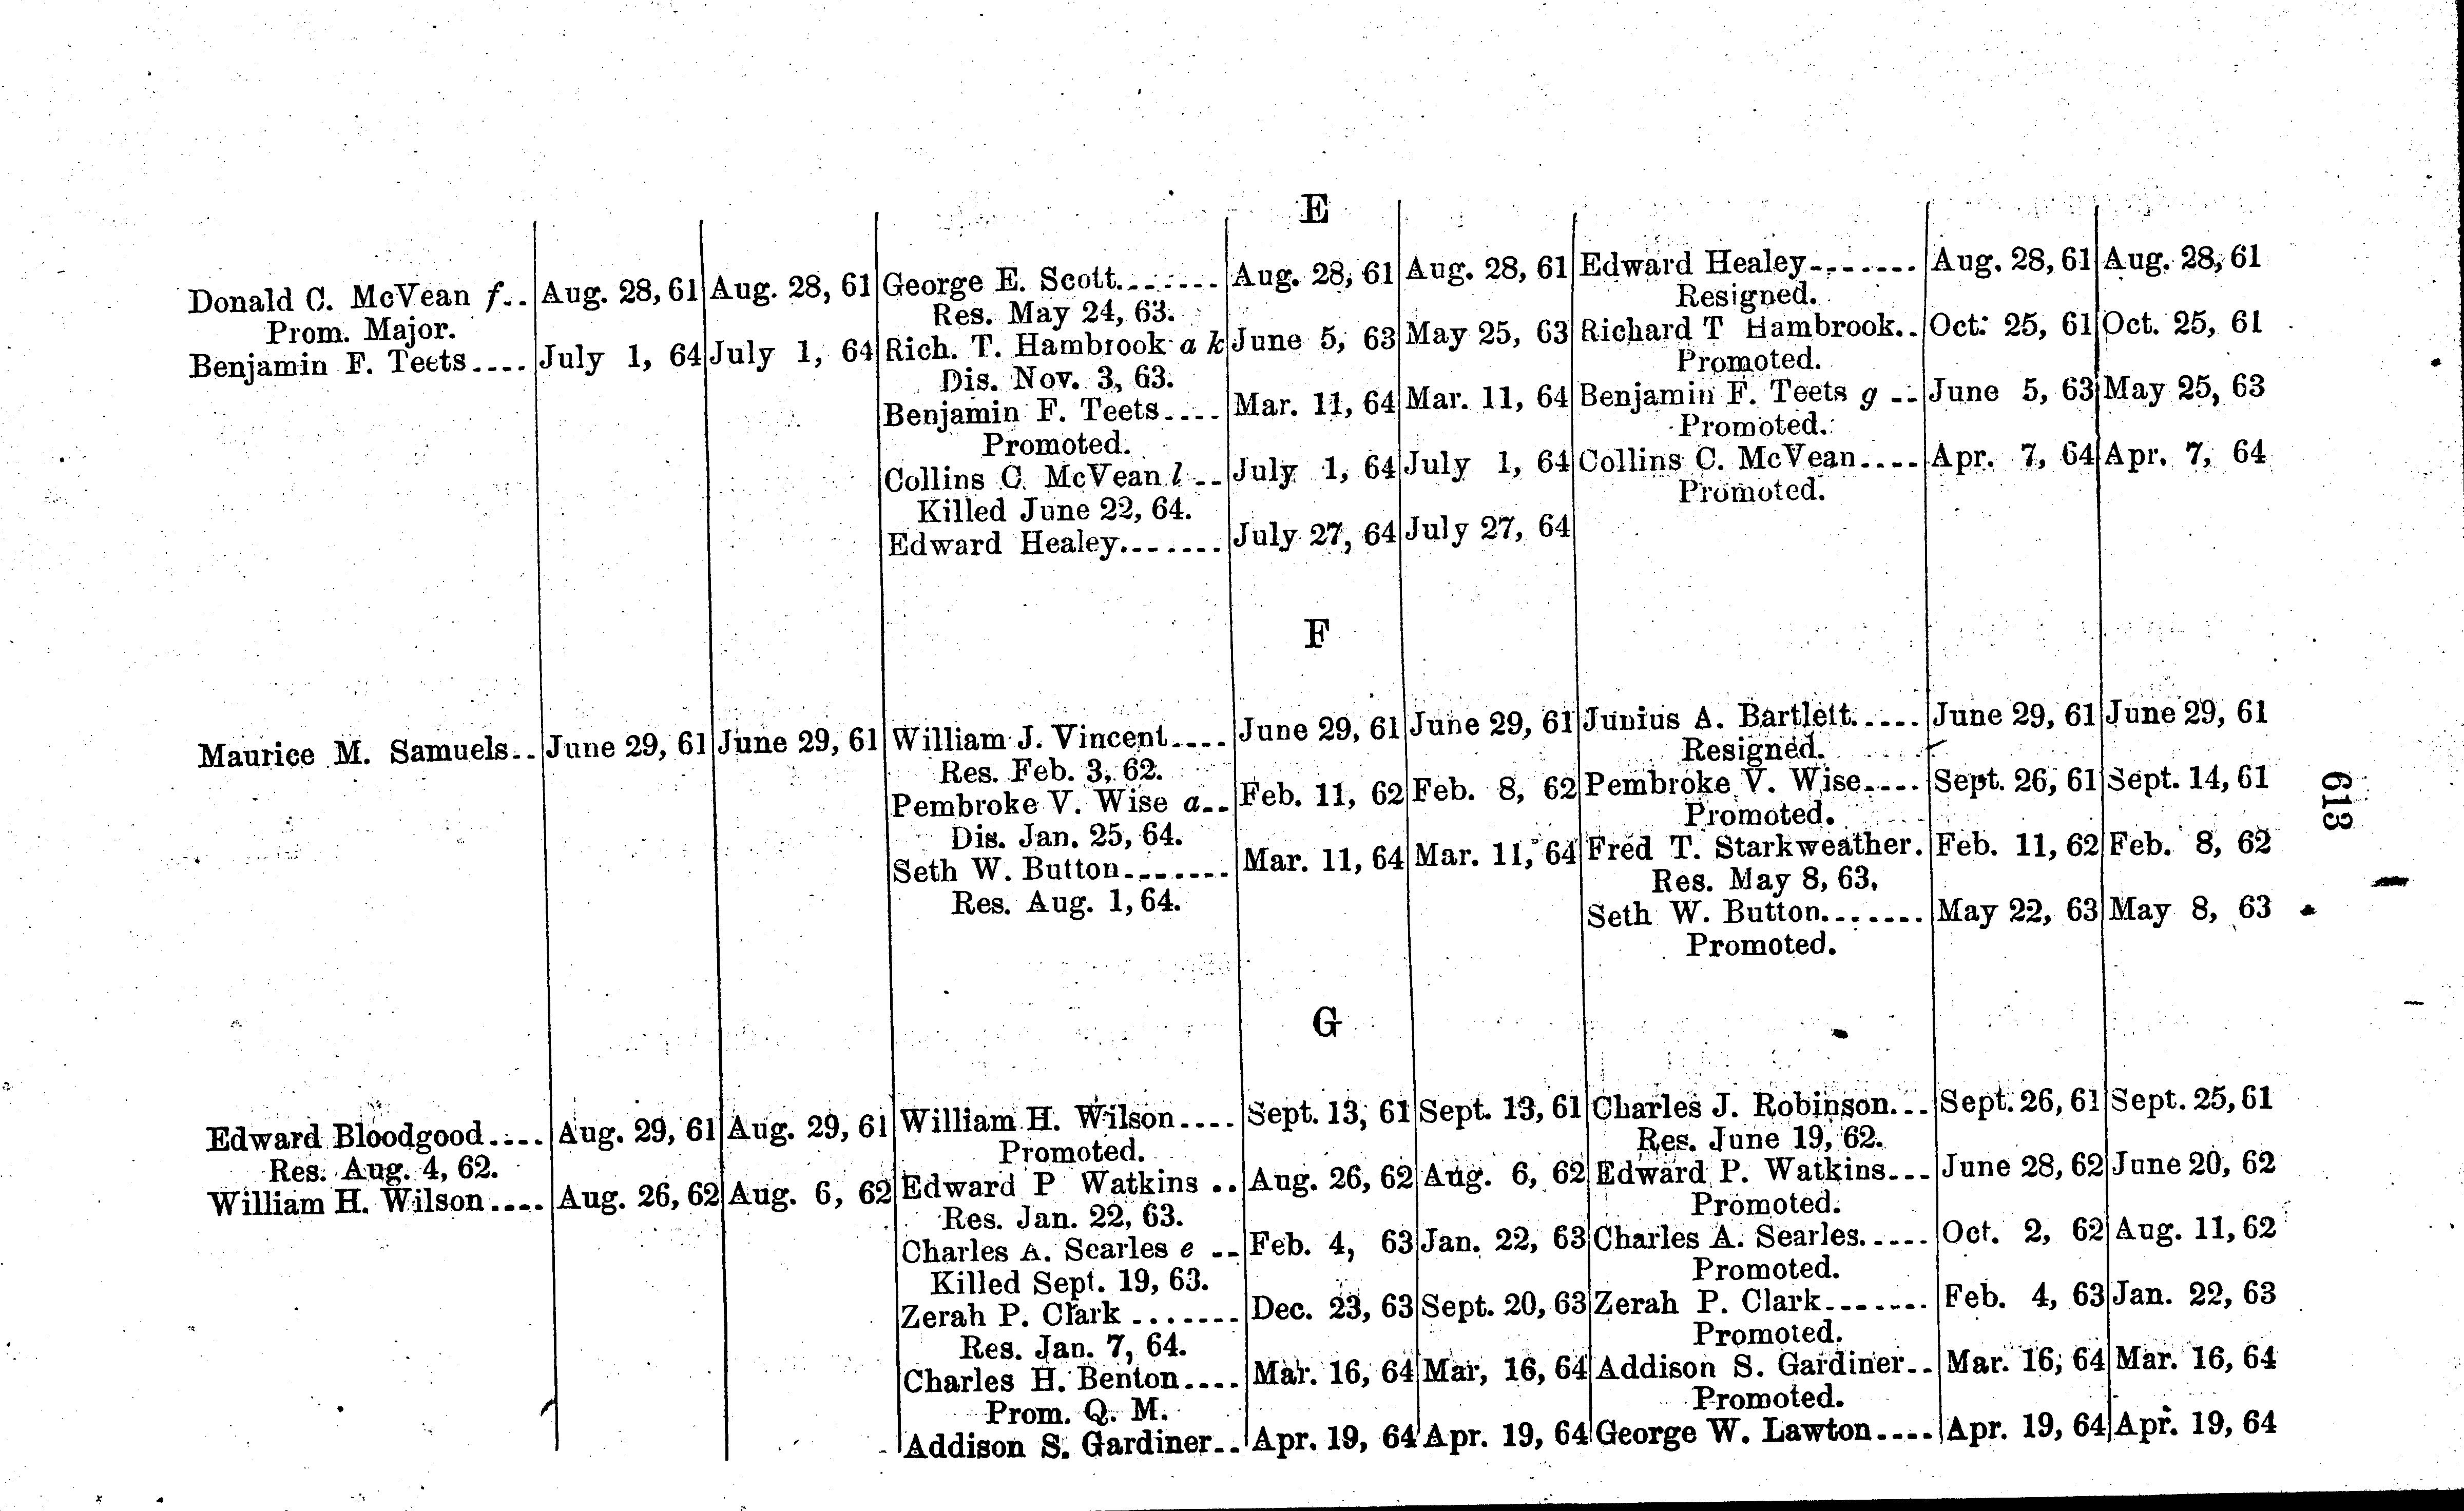 E
Donald C. McVean f.. Aug. 28, 61 Aug. 28, 61 George E. Scott........ Aug. 28, 61 Aug. 28, 61 Edward Healey........ Aug. 28, 61 Aug. 28, 61
Prom. Major. Res. May 24, 63. Resigned.
Benjamin F. Teets.... July 1, 64 July 1, 64 Rich. T. Hambrook a k June 5, 63 May 25, 63 Richard T Hambrook.. Oct. 25, 61 Oct. 25, 61
Dis. Nov. 3, 63. Promoted.
Benjamin F. Teets.... Mar. 11, 64 Mar. 11, 64 Benjamin F. Teets g .. June 5, 63 May 25, 63
Promoted. Promoted.
Collins C. McVean l .. July 1, 64 July 1, 64 Collins C. McVean.... Apr. 7, 64 Apr. 7, 64
Killed June 22, 64. Promoted.
Edward Healey....... July 27, 64 July 27, 64
F
Maurice M. Samuels.. June 29, 61 June 29, 61 William J. Vincent.... June 29, 61 June 29, 61 Junius A. Bartlett..... June 29, 61 June 29, 61
Res. Feb. 3, 62. Resigned.
Pembroke V. Wise a.. Feb. 11, 62 Feb. 8, 62 Pembroke V. Wise.... Sept. 26, 61 Sept. 14, 61
Dis. Jan. 25, 64. Promoted.
Seth W. Button....... Mar. 11, 64 Mar. 11, 64 Fred T. Starkweather. Feb. 11, 62 Feb. 8, 62
Res. Aug. 1, 64. Res. May 8, 63.
Seth W. Button....... May 22, 63 May 8, 63
Promoted.
613
G
Edward Bloodgood.... Aug. 29, 61 Aug. 29, 61 William H. Wilson.... Sept. 13, 61 Sept. 13, 61 Charles J. Robinson... Sept. 26, 61 Sept. 25, 61
Res. Aug. 4, 62. Promoted. Res. June 19, 62.
William H. Wilson.... Aug. 26, 62 Aug. 6, 62 Edward P Watkins .. Aug. 26, 62 Aug. 6, 62 Edward P. Watkins... June 28, 62 June 20, 62
Res. Jan. 22, 63. Promoted.
Charles A. Searles e .. Feb. 4, 63 Jan. 22, 63 Charles A. Searles..... Oct. 2, 62 Aug. 11, 62
Killed Sept. 19, 63. Promoted.
Zerah P. Clark ....... Dec. 23, 63 Sept. 20, 63 Zerah P. Clark....... Feb. 4, 63 Jan. 22, 63
Res. Jan. 7, 64. Promoted.
Charles H. Benton.... Mar. 16, 64 Mar, 16, 64 Addison S. Gardiner.. Mar. 16, 64 Mar. 16, 64
Prom. Q. M. Promoted.
Addison S. Gardiner.. Apr. 19, 64 Apr. 19, 64 George W. Lawton.... Apr. 19, 64 Apr. 19, 64